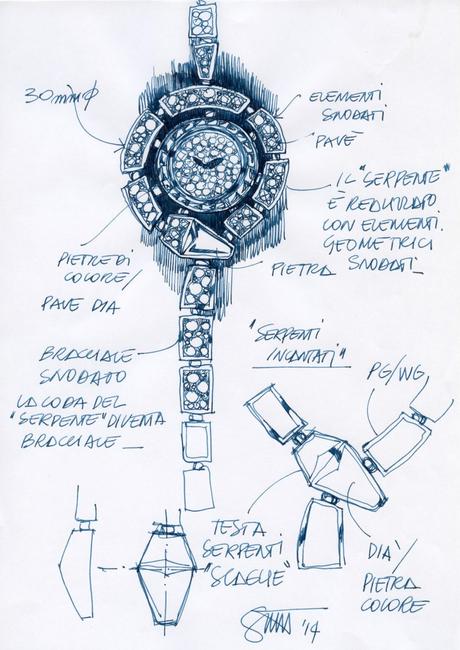 30mm ϕ
ELEMENTI
SNODATI
PAVÈ
IL "SERPENTE"
È REALIZZATO
CON ELEMENTI
GEOMETRICI
SNODATI
PIETRE DI
COLORE/
PAVE DIA
PIETRA
BRACCIALE
SNODATO
LA CODA DEL
"SERPENTE" DIVENTA
BRACCIALE
"SERPENTI
INCANTATI"
PG/WG
TESTA
SERPENTI
"SCAGLIE"
DIA/
PIETRA
COLORE
'14